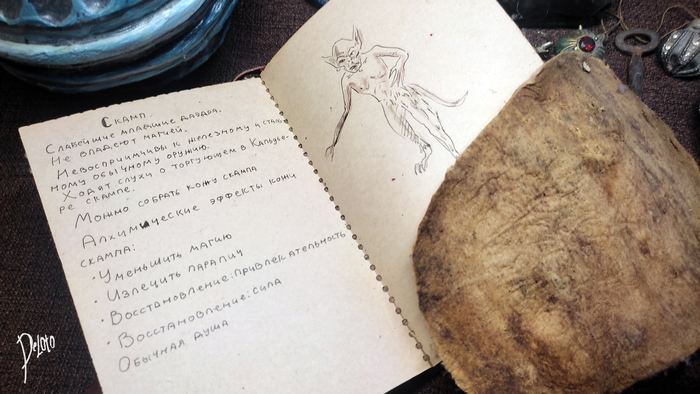 Скамп.
Слабейшие младшие даэдра.
Не владеют магией.
Невосприимчивы к железному и сталь-
ному обычному оружию.
Ходят слухи о торгующем в Кальде-
ре скампе.
Можно собрать кожу скампа
Алхимические эффекты кожи
скампа:
• Уменьшить магию
• Излечить паралич
• Восстановление: привлекательность
• Восстановление: сила
Обычная душа
DeLoTo